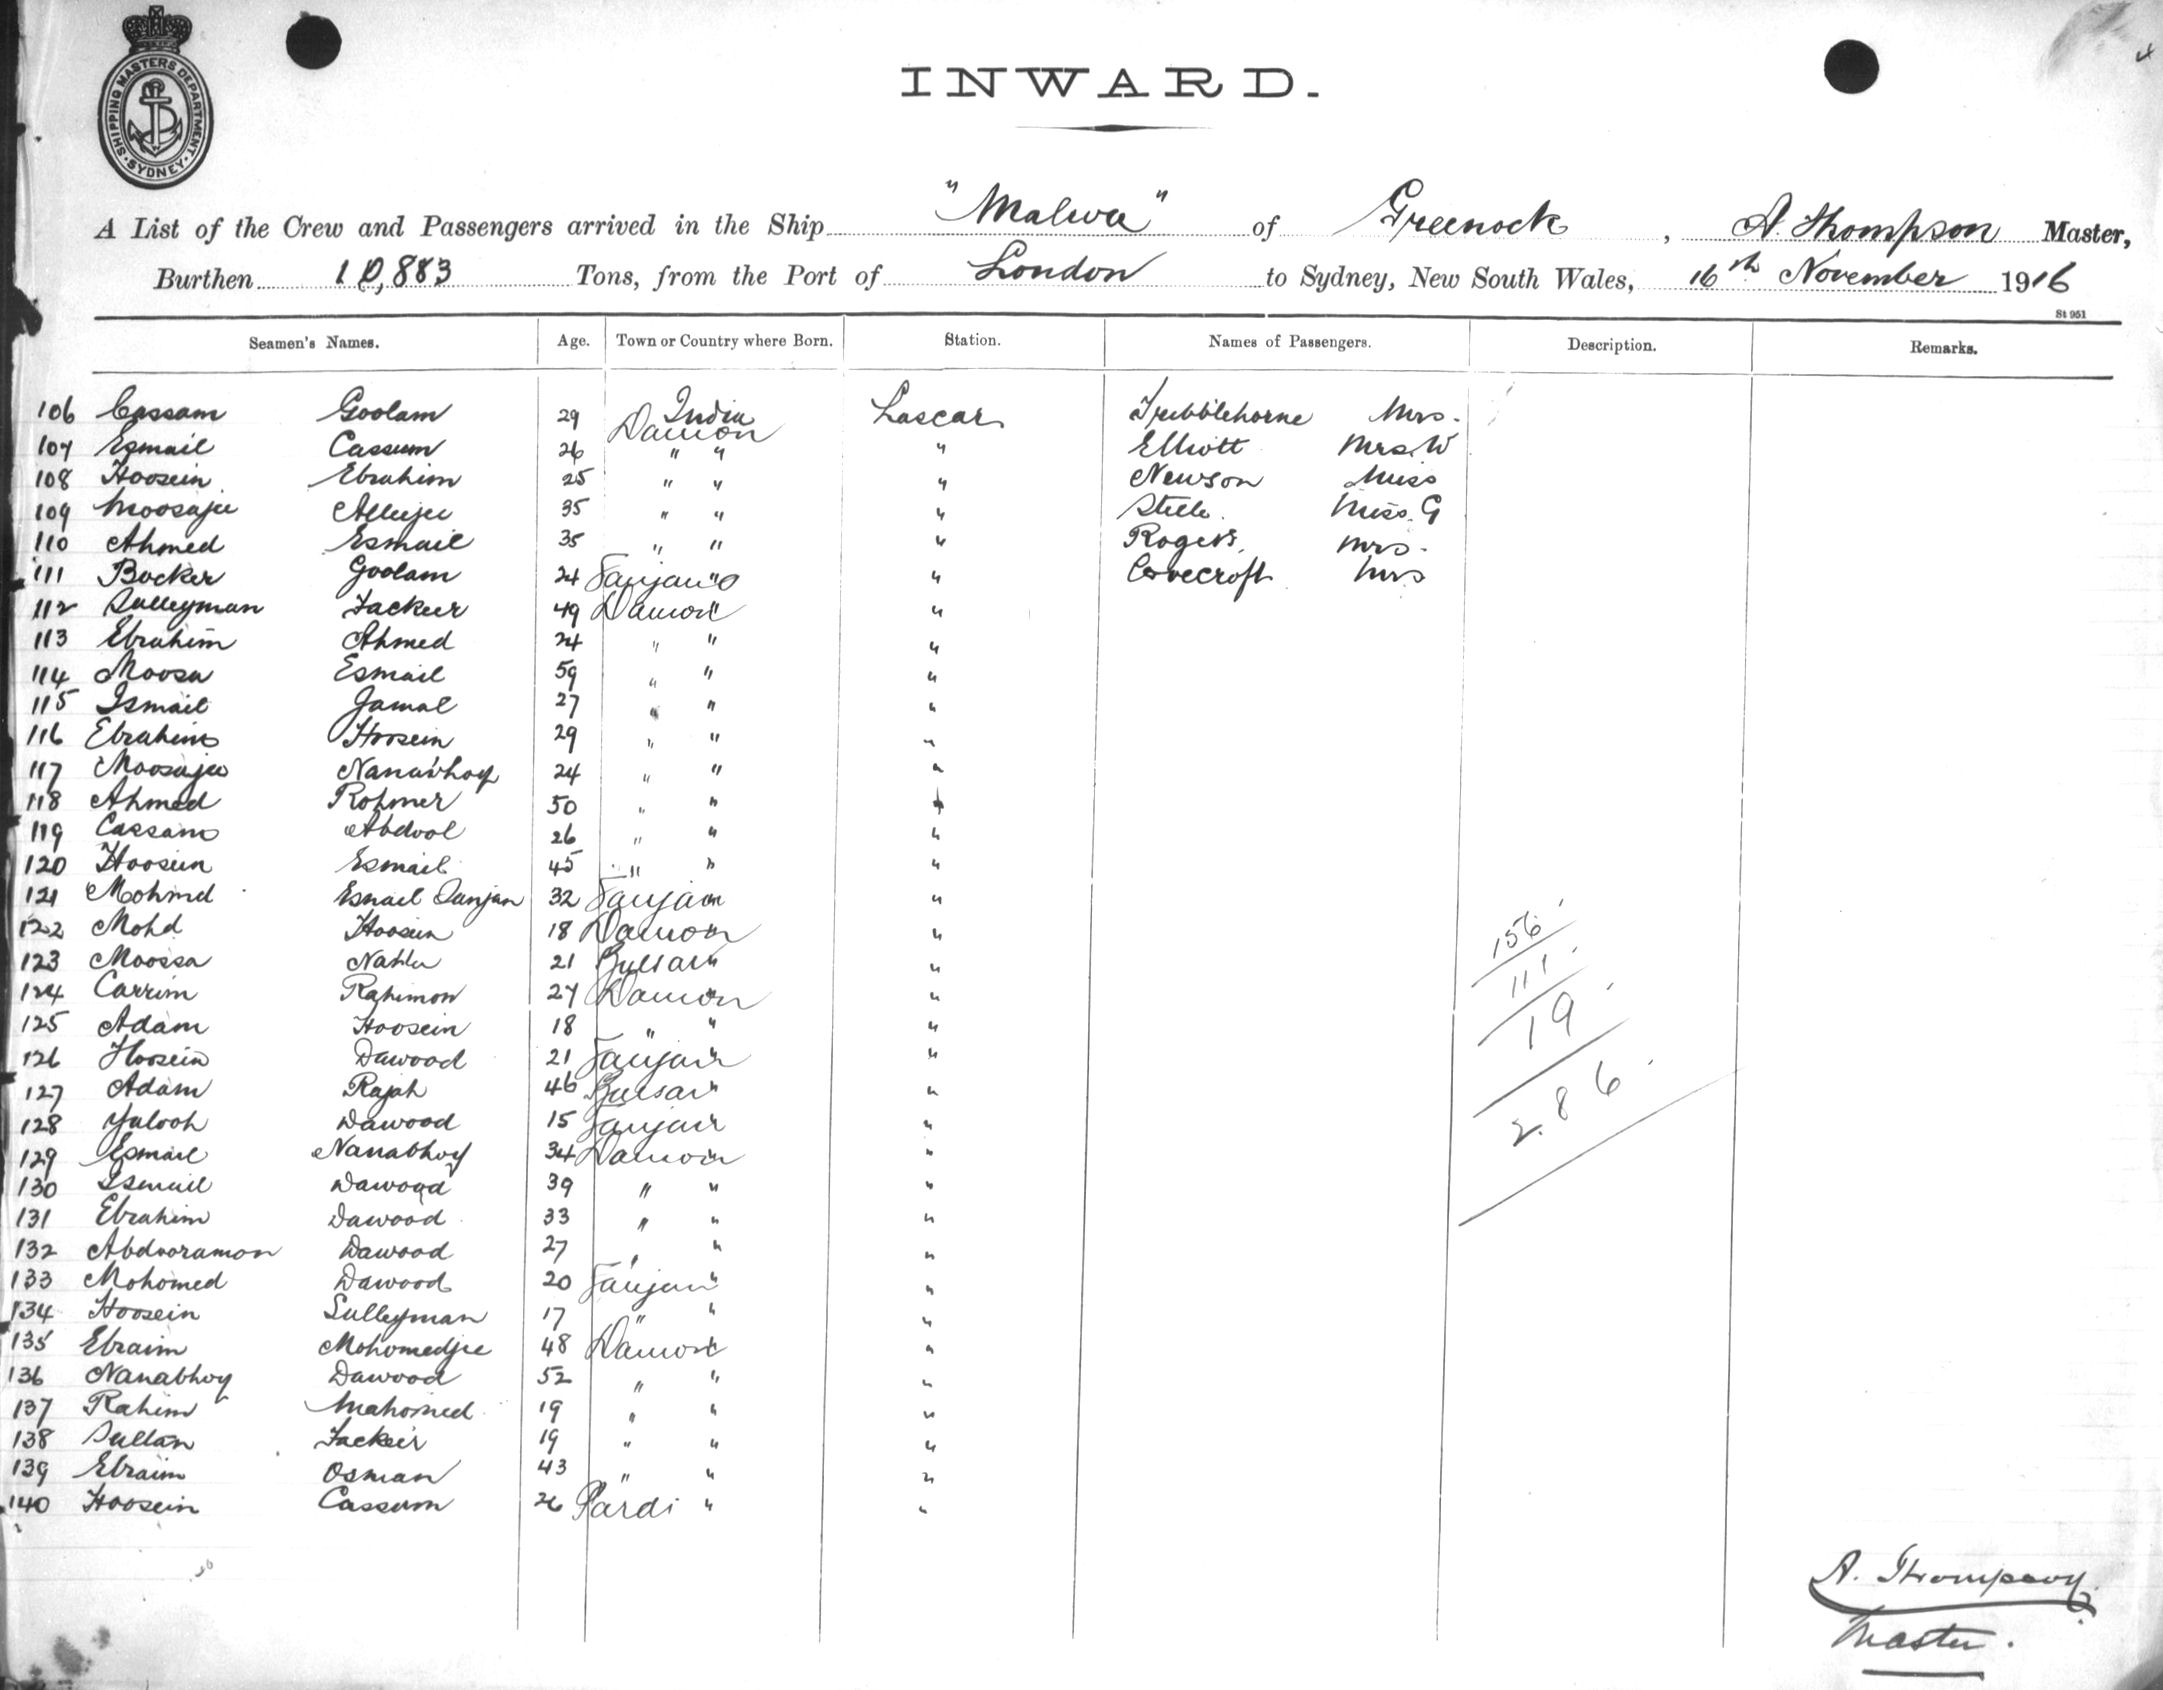 SHIPPING MASTERS DEPARTMENT · SYDNEY ·
INWARD.
A List of the Crew and Passengers arrived in the Ship "Malwa" of Greenock, A. Thompson Master,
Burthen 10,883 Tons, from the Port of London to Sydney, New South Wales, 16th November 1916
St 951
Seamen's Names. Age. Town or Country where Born. Station. Names of Passengers. Description. Remarks.
106 Cassam Goolam 29 India Lascar Tribblehorne Mrs.
Damon
107 Esmail Cassum 26 " " " Elliott Mrs. W
108 Hoosein Ebrahim 25 " " " Newson Miss
109 Moosajee Alleejee 35 " " " Steele. Miss. G
110 Ahmed Esmail 35 " " " Rogers, Mrs.
111 Bocker Goolam 24 Sanjan " " Mrs
112 Sulleyman Fackeer 49 Damon " "
113 Ebrahim Ahmed 24 " " "
114 Moosa Esmail 59 " " "
115 Ismail Jamal 27 " " "
116 Ebrahim Hoosein 29 " " "
117 Moosajee Nanabhoy 24 " " "
118 Ahmed Rohmer 50 " " "
119 Cassam Abdool 26 " " "
120 Hoosein Esmail 45 " " "
121 Mohmd Esmail Sanjan 32 Sanjan " "
122 Mohd Hoosein 18 Damon " "
123 Moossa 21 Bulsar " "
124 Carrim Rahimon 27 Damon " "
125 Adam Hoosein 18 " " "
126 Hoosein Dawood 21 Sanjan " "
127 Adam Rajah 46 Bulsar " "
128 Yalooh Dawood 15 Sanjan " "
129 Esmail Nanabhoy 34 Damon " "
130 Ismail Dawood 39 " " "
131 Ebrahim Dawood 33 " " "
132 Abdooramon Dawood 27 " " "
133 Mohomed Dawood 20 Sanjan " "
134 Hoosein Sulleyman 17 " " "
135 Ebraim Mohomedjee 48 Damon " "
136 Nanabhoy Dawood 52 " " "
137 Rahim Mahomed 19 " " "
138 Sultan Fackeer 19 " " "
139 Ebraim Osman 43 " " "
140 Hoosein Cassum 26 Pardi " "
156
111
19
286
A. Thompson
Master.